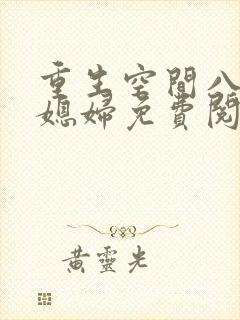 重生空間八
媳婦免費閱
黃靈光